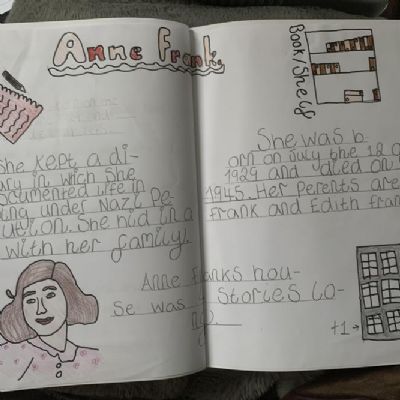 Anne Frank
Book/Shelf
She kept a di-
ary in wich She
documented life in
ing under Nazi Pe
ution. She hid in a
with her family.
She was b-
orn on July the 12 o
1929 and died on
1945. Her Perents are
Frank and Edith Fran
Anne Franks hou-
Se was 4 Stories lo-
ng.
+1→